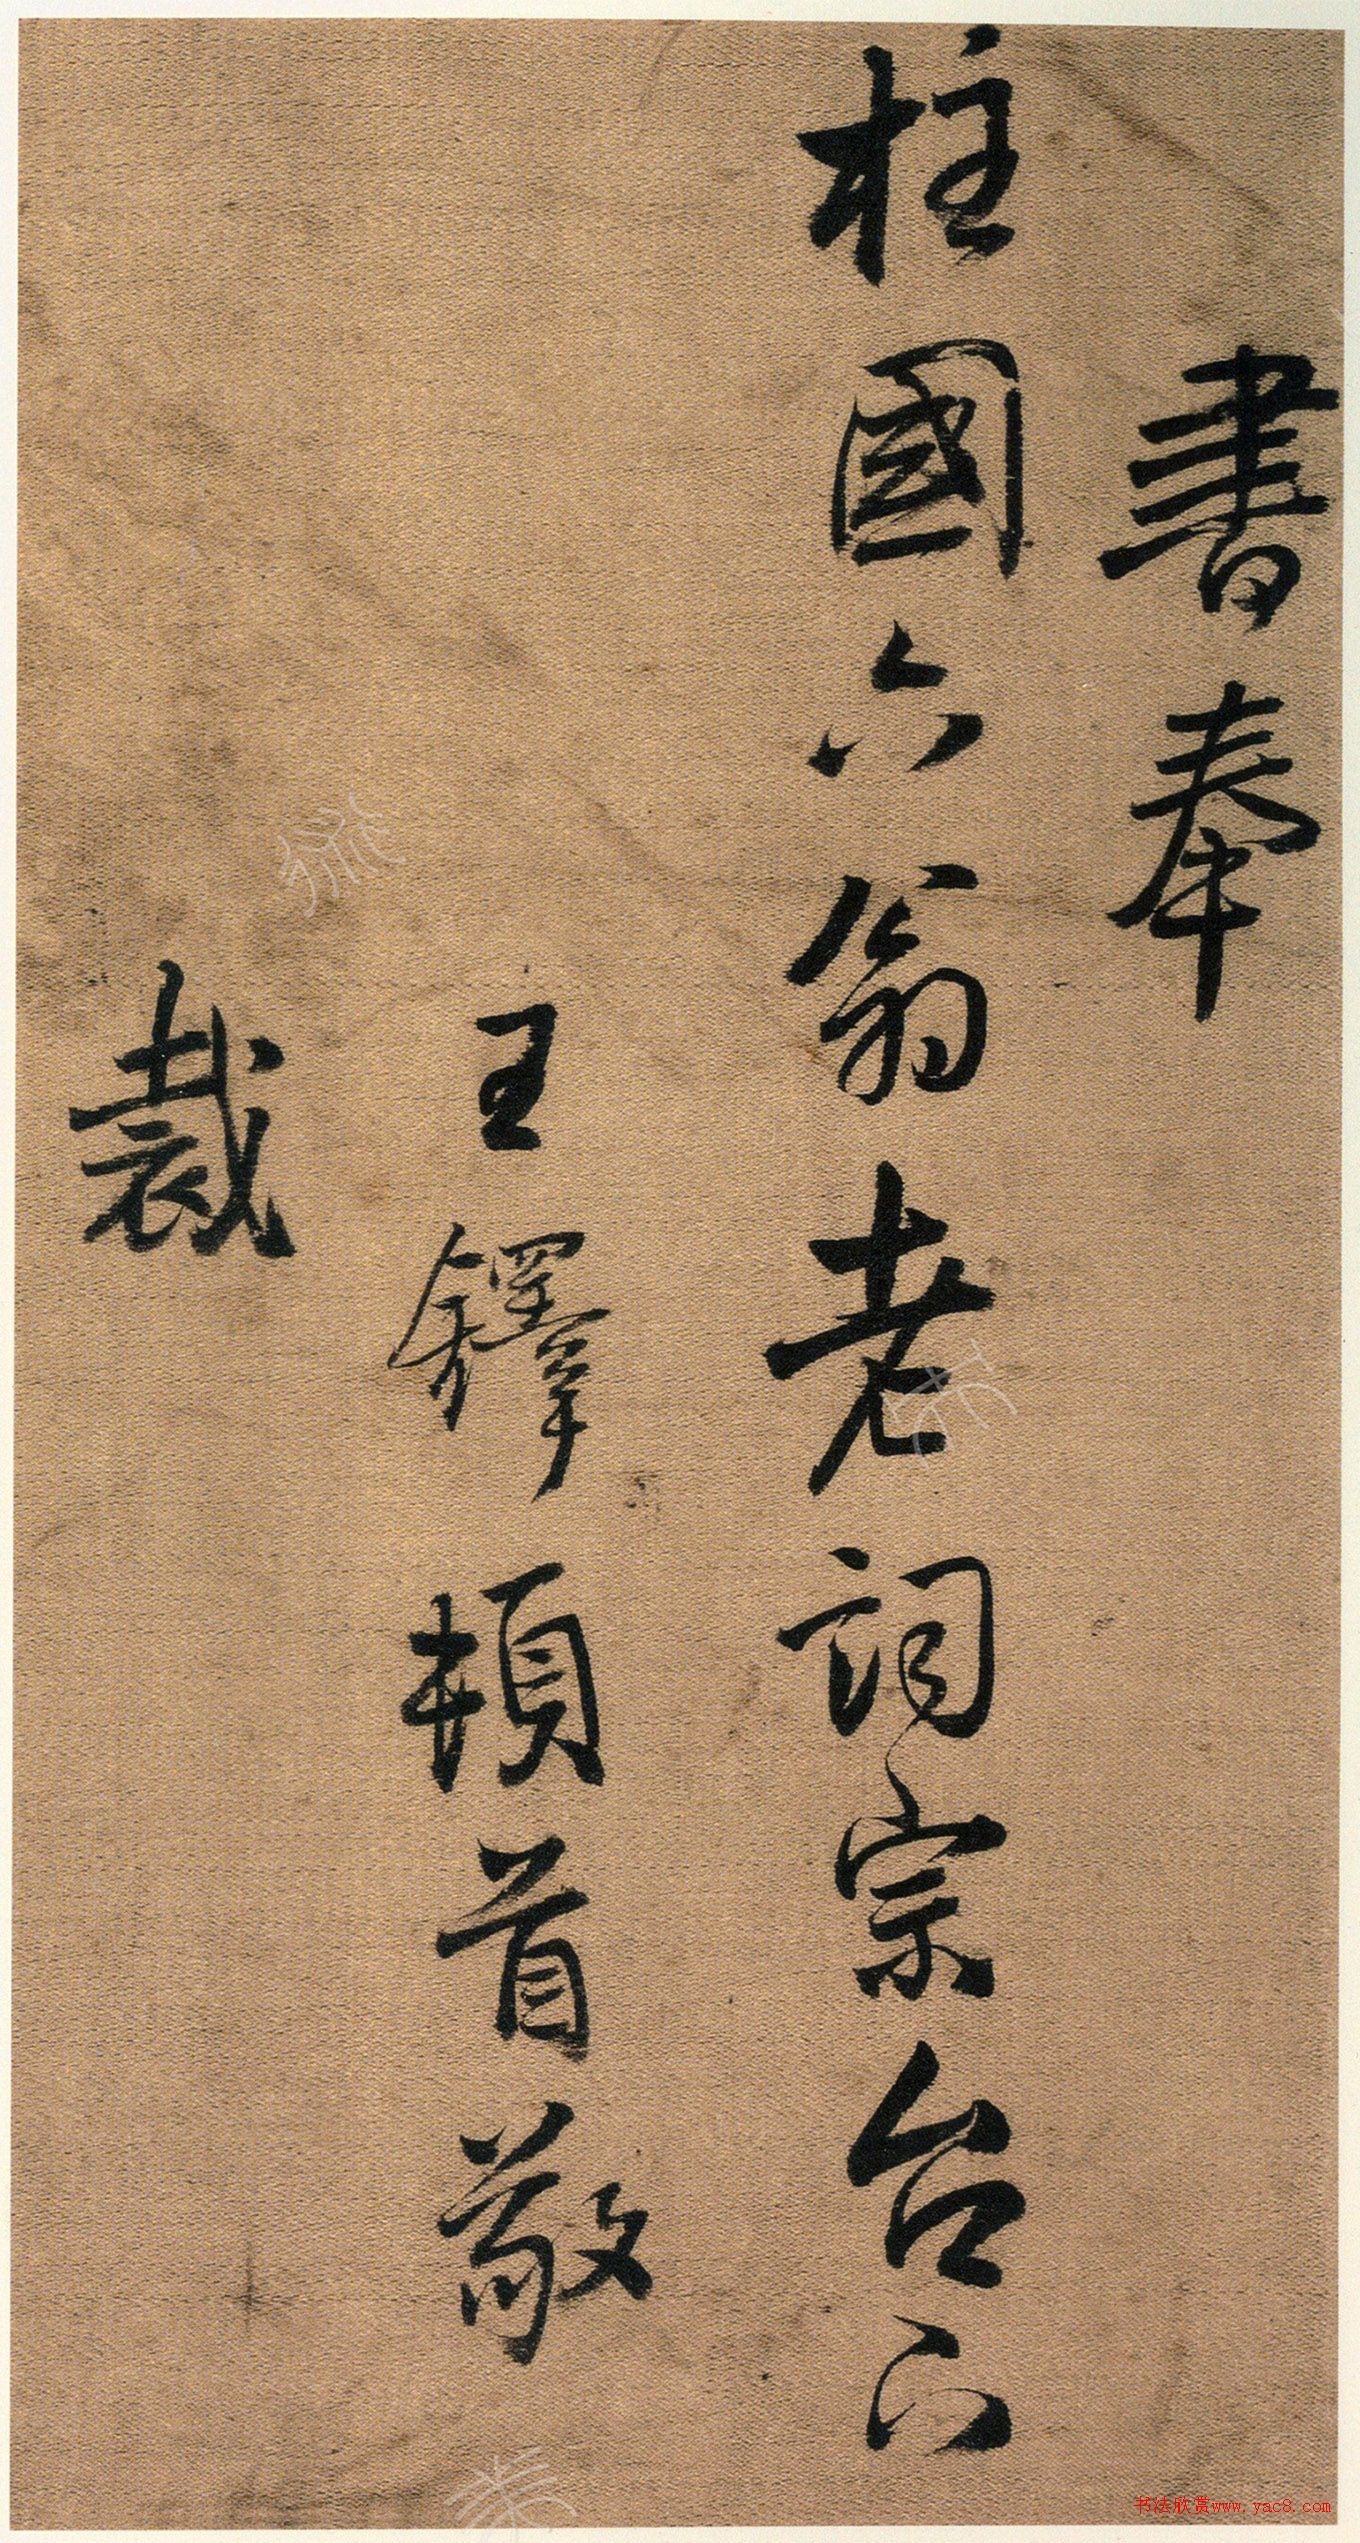 書奉
柱國六翁老詞宗台下
王鐸頓首敬
裁
书法欣赏www.yac8.com